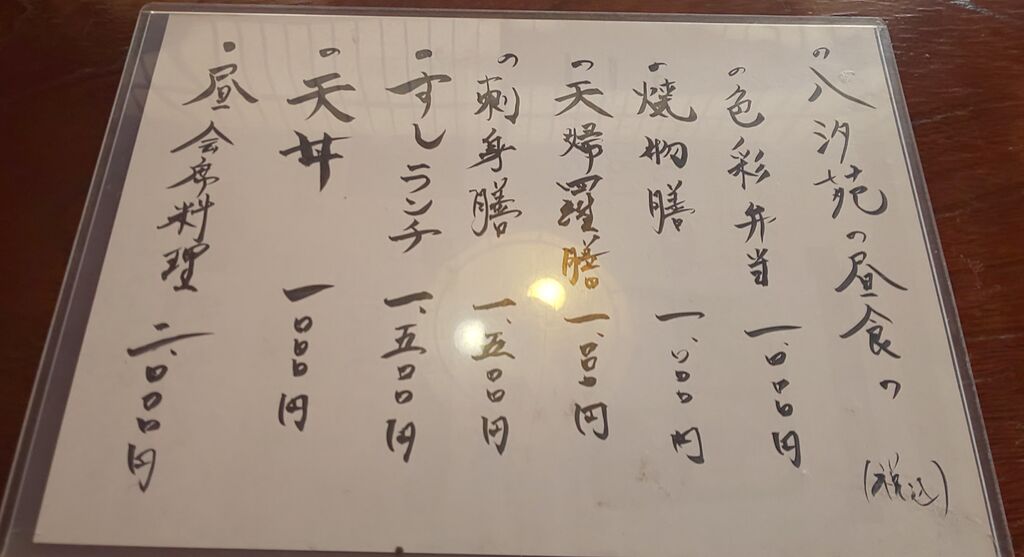 の八汐苑の昼食の
(税込)
の色彩弁当 一、〇〇〇円
・焼物膳 一、〇〇〇円
の天婦羅膳 一、〇〇〇円
の刺身膳 一、五〇〇円
・すしランチ 一、五〇〇円
の天丼 一〇〇〇円
・昼会席料理 二、〇〇〇円